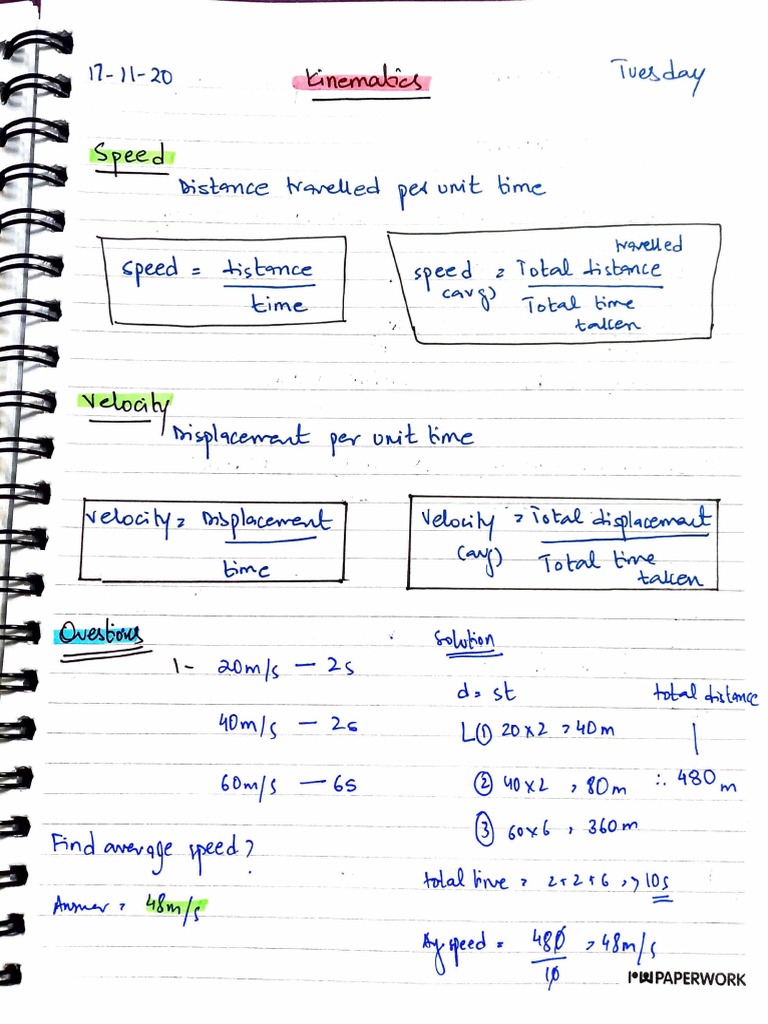 17-11-20 Kinematics Tuesday
Speed
Distance travelled per unit time
speed = distance
time
travelled
speed = Total distance
(avg)
Total time
taken
Velocity
Displacement per unit time
velocity = Displacement
time
Velocity = Total displacement
(avg) Total time
taken
Questions
1- 20m/s — 2s
40m/s — 2s
60m/s — 6s
Find average speed?
Answer = 48m/s
Solution
d = st total distance
① 20×2 = 40m
② 40×2 = 80m ∴ 480m
③ 60×6 = 360m
total time = 2+2+6 => 10s
Avg speed = 480 = 48m/s
10
PAPERWORK